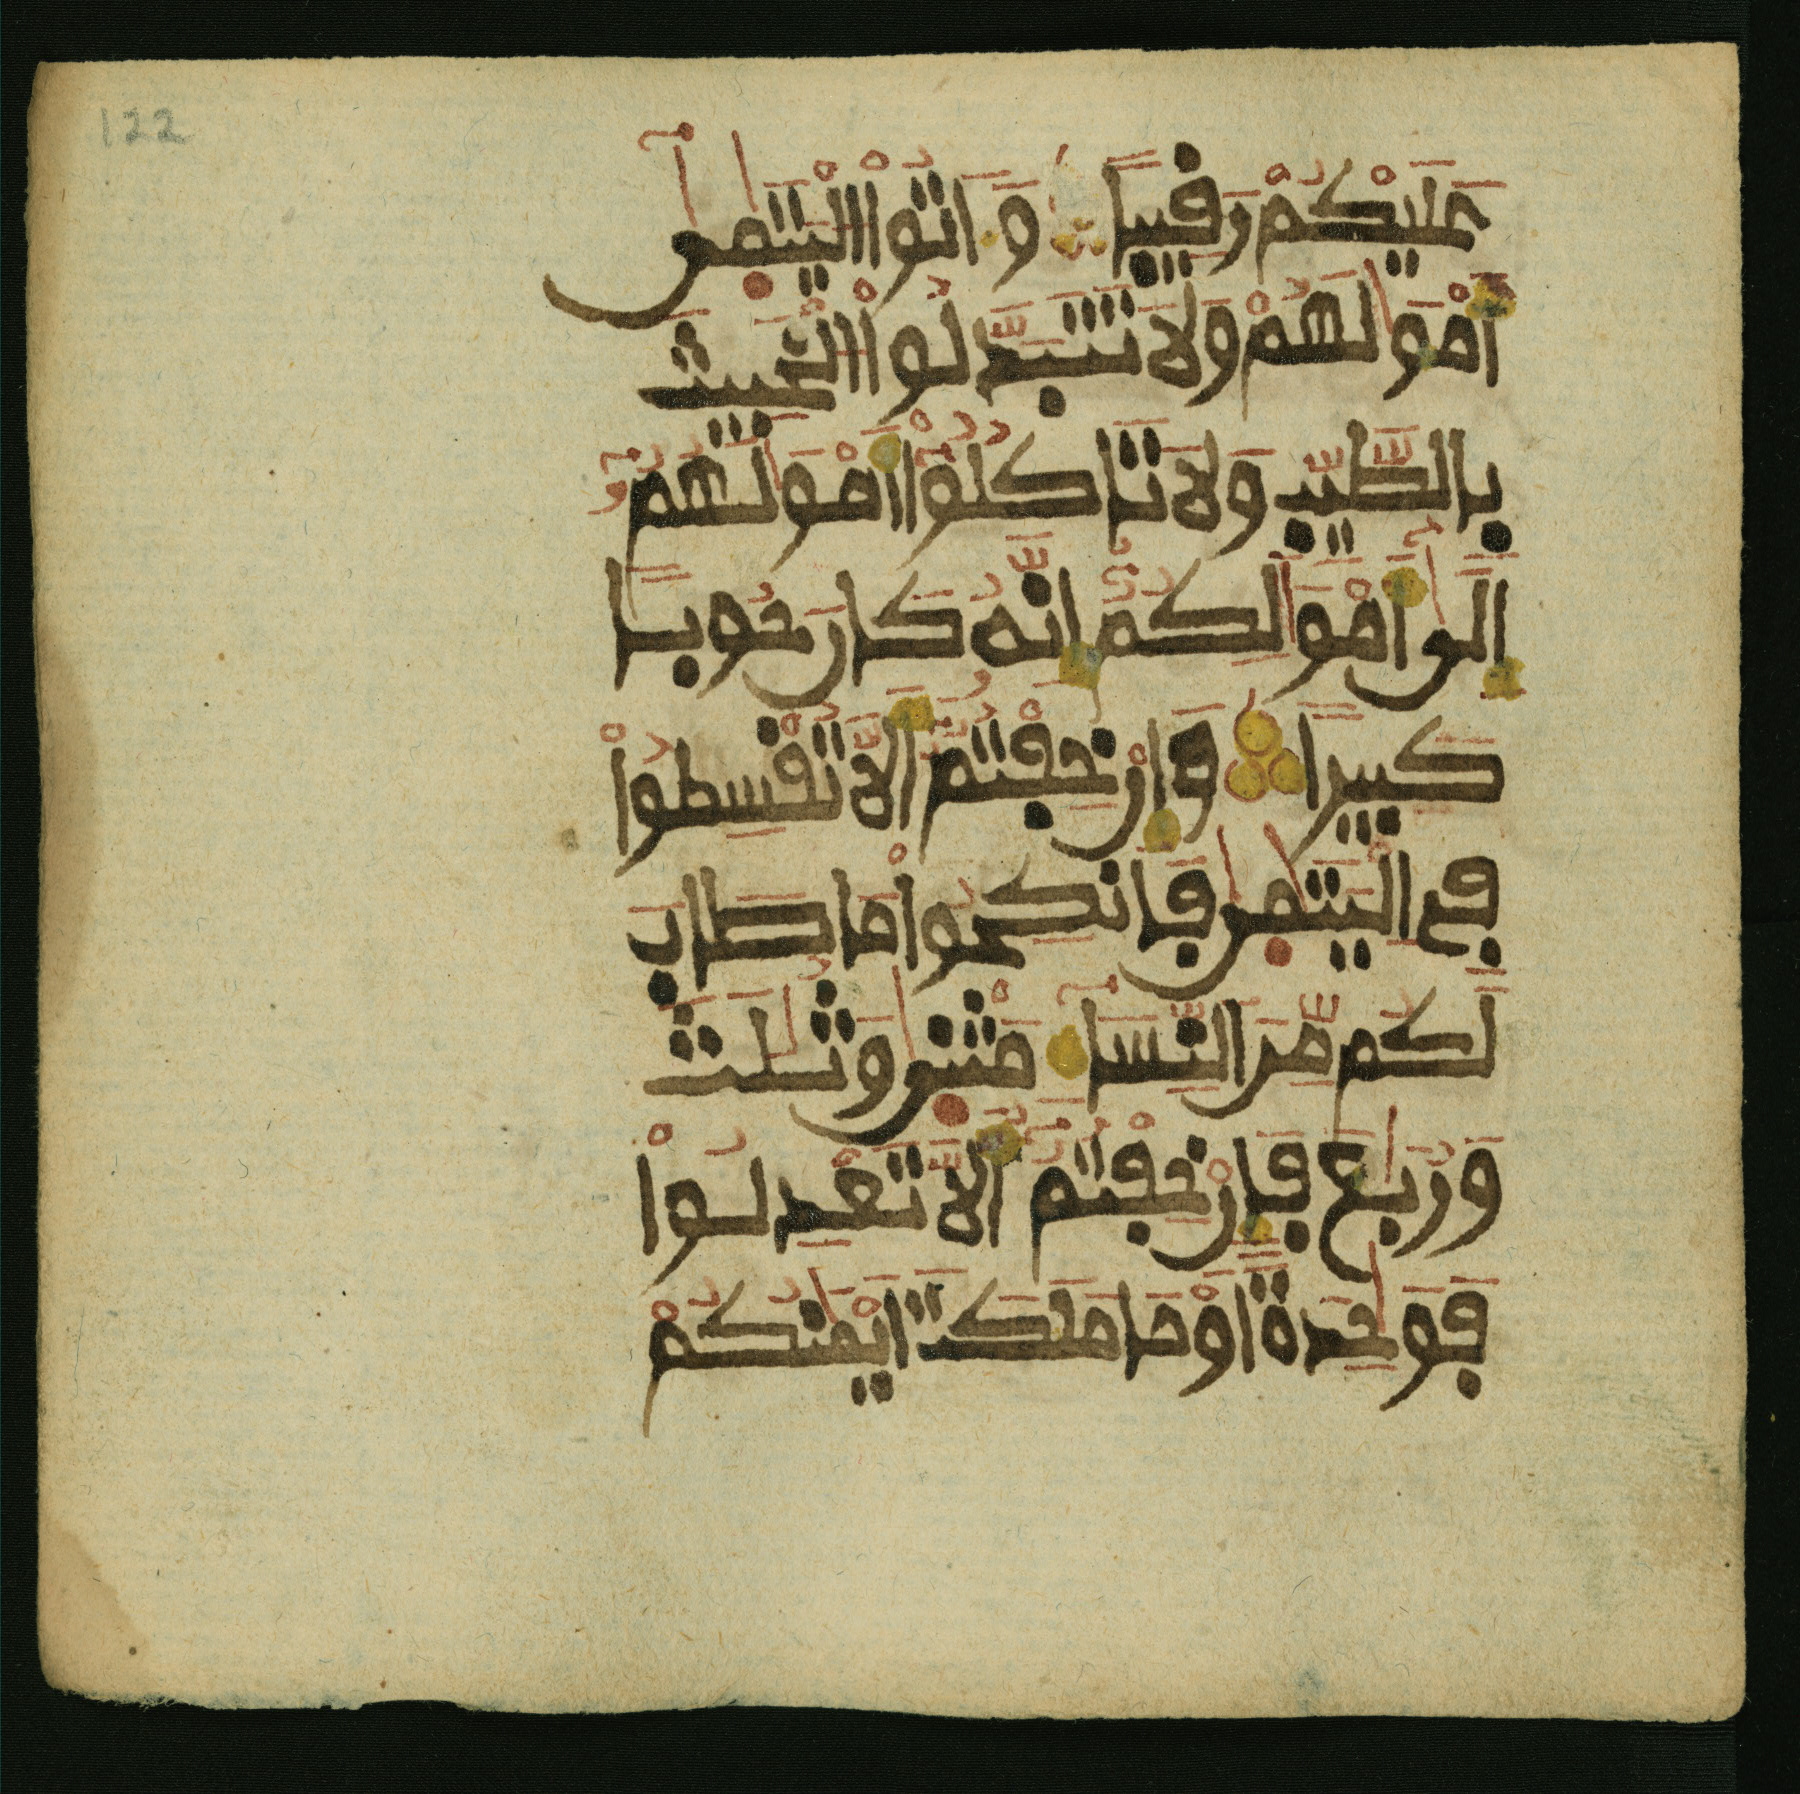 122
عَلَيْكُمْ رَقِيبًا وَءَاتُوا۟ الْيَتَٰمَىٰٓ
أَمْوَٰلَهُمْ وَلَا تَتَبَدَّلُوا۟ الْخَبِيثَ
بِالطَّيِّبِ وَلَا تَاكُلُوٓا۟ أَمْوَٰلَهُمُۥٓ
إِلَىٰٓ أَمْوَٰلِكُمُۥٓ إِنَّهُۥ كَانَ حُوبًا
كَبِيرًا وَإِنْ خِفْتُمُۥٓ أَلَّا تُقْسِطُوا۟
فِے الْيَتَٰمَىٰ فَانكِحُوا۟ مَا طَابَ
لَكُم مِّنَ النِّسَآءِ مَثْنَىٰ وَثُلَٰثَ
وَرُبَٰعَ فَإِنْ خِفْتُمُۥٓ أَلَّا تَعْدِلُوا۟
فَوَٰحِدَةً اَوْ مَا مَلَكَتَ اَيْمَٰنُكُمْ